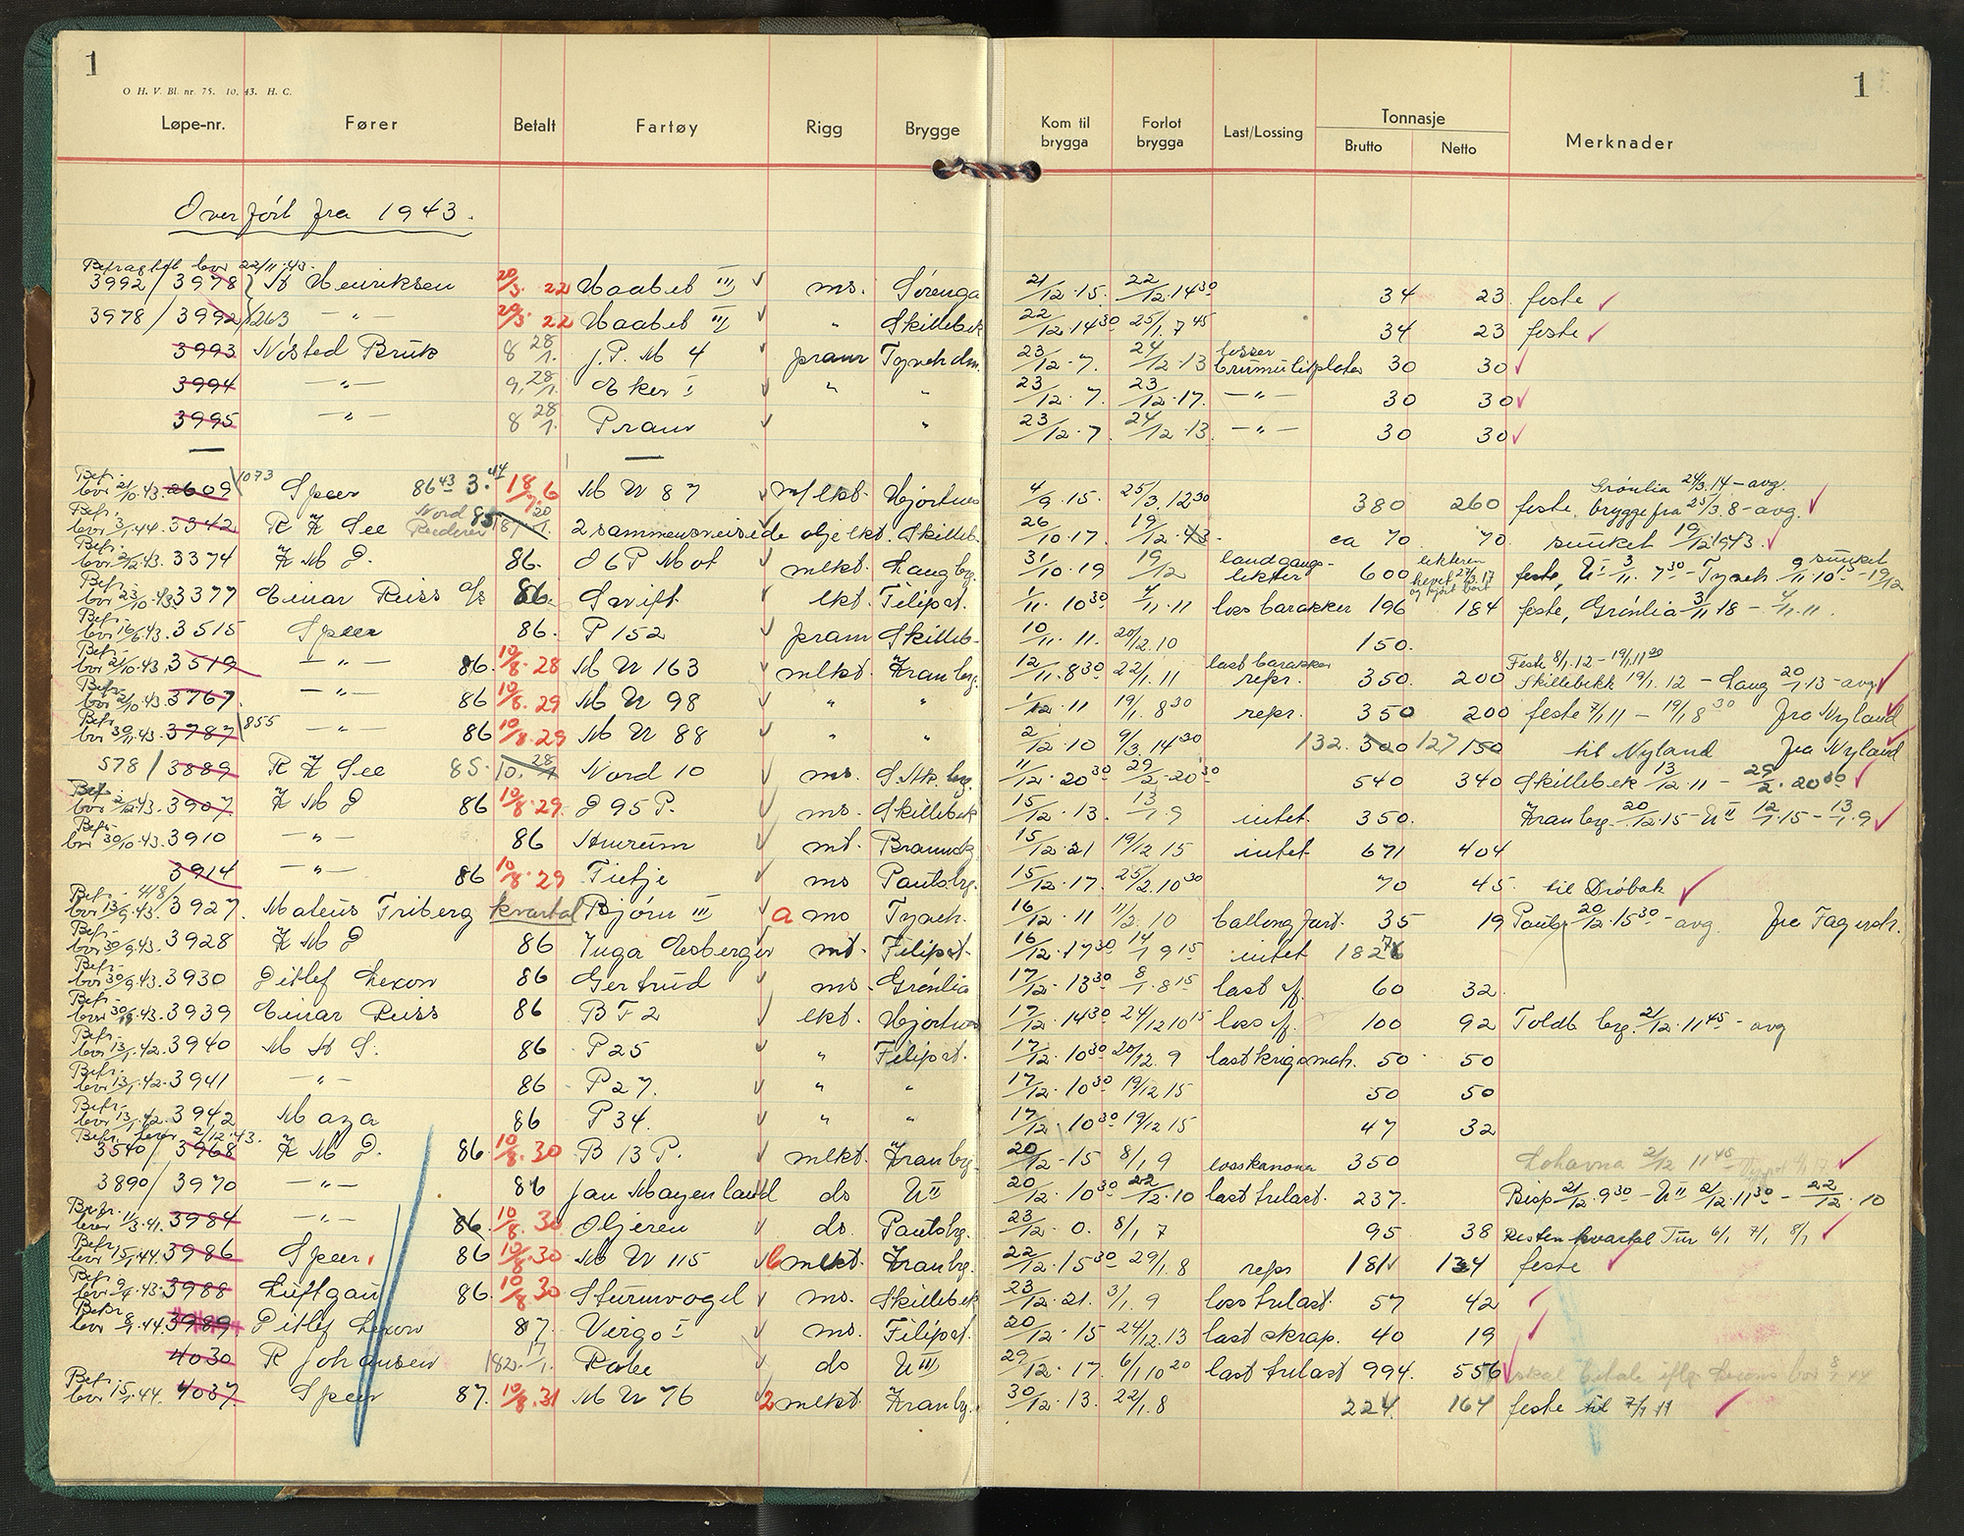 1
O H. V. Bl. nr. 75. 10. 43. H. C.
Løpe-nr. Fører Betalt Fartøy Rigg Brygge Kom til brygga Forlot brygga Last/Lossing Tonnasje Brutto Netto Merknader
1
Overført fra 1943.
Befragtet lovr 22/11-43.
3992/3978 Henriksen 20/3. 22 Haabet III ms. Sørenga 21/12.15. 22/12.14 30 34 23 feste
3978/3992 1263 -"- 20/3. 22 Haabet II " Skillebek 22/12 14 30 25/1. 7 45 34 23 feste
3993 Nøsted Bruk 8 28/1. J. P. M 4 pram Tyveh 23/12.7. 24/12.13 losser 30 30
3994 -"- 9, 28/1. Eker I " " 23/12.7. 23/12.17. -"- 30 30
3995 -"- 8 28/1. Pram " 23/12.7. 24/12.13. -"- 30 30
Befr. 21/10.43. 2609 1073 Speer 86 43 3. 44 18/7. 6 M U 87 m/lkt. Hjortnes 4/9.15. 25/3.12 30 380 260 feste, Grønlia 24/3.14 - avg. brygge fra 25/3.8 - avg.
Befr. 3/1.44. 3342 R K See Nord Reederei 85 2 sammensveisede olje lkt. Skilleb. 26/10.17 19/12.43. ca 70 70 sunket 19/12 1943.
Befr. 3/12.43. 3374 K M D. 86. O 6 P Mot mlkt. Langbg. 31/10.19 19/12 landgangslekter 600 lekteren hevet 27/3.17 og kjørt bort feste, U I 3/11. 7 30 - Tyveh. 9/11 10 15 - 19/12 sunket
Befr. 23/10.43 3377 Einar Reiss 86. Swift lkt. Filipst. 1/11. 10 30 4/11.11 loss barakker 196 184 feste, Grønlia 3/11 18 - 4/11.11.
Befr. 16/6.43. 3515 Speer 86. P 152 pram Skilleb. 10/11. 11. 20/12.10 150.
Befr. 21/10.43. 3519 -"- 86. 10/8. 28 M U 163 mlkt. Kranbrg. 12/11.8 30 22/1.11 last barakker repr. 350. 200 Feste 8/1.12 - 19/1.11 30 Skillebekk 19/1.12 - Laug 20/1.13 - avg
Befr. 21/10.43. 3767. -"- 86 10/8. 29 M U 98 " " 1/12.11 19/1. 8 30 repr. 350 200 feste 7/1 11 - 19/1 8 30 fra Nyland
Befr. 30/11.43. 3787 855 -"- 86 10/8.29 M U 88 " " 2/12.10 9/3.14 30 132. 300 127 150 til Nyland fra Nyland
578/3889 R K See 85. 10. 28/1 Nord 10 ms. S. Stk. bg. 11/12.20 30 29/2.20 30 540 340 Skillebek 13/12.11 - 29/2.20 30
Befr. 2/12.43. 3907 K M D 86 10/8.29. D 95 P. ms. Skillebek 15/12.13. 13/1.9 intet. 350. Kranbg. 20/12.15 - U II 12/1.15 - 13/1.9
Befr. 30/10.43. 3910 -"- 86 Amrum mt. 15/12.21 19/12 15 intet 671 404
3914 -"- 86 10/8.29 Tietje ms Pautsbg. 15/12.17. 25/2.10 30 70 45. til Drøbak
Befr. 13/9.43. 3927. Mateus Friberg kvartal Bjørn III a ms Tyveh. 16/12.11 11/2.10 ballong fart. 35 19 Pautsbg 20/12.15 30 - avg.
Befr. 30/9.43. 3928 K M D 86 Inga Essberger mt. Filipst. 16/12.17 30 14/1 9 15 intet 1827
Befr. 30/9.43. 3930 Ditlef Lexow 86 Gertrud ms. Grønlia 17/12.13 30 8/1.8 15 last 60 32.
Befr. 43. 3939 Einar Reiss 86 B F 2 lkt. Hjortnes 17/12.14 30 24/12 10 15 loss 100 92 Toldb brg. 21/12.11 45 - avg
Befr. 13/1.42. 3940 M A S. 86 P 25 " Filipst. 17/12.10 30 20/12.9 last krigsmat. 50 50
Befr. 13/1.42. 3941 -"- 86 P 27. " " 17/12.10 30 19/12 15 50 50
Befr. 13/1.42. 3942 Maza 86 P 34. " " 17/12.10 30 19/12 15 47 32
Befr. lovr 2/12.43.
3540/3968 K M D. 86. 10/8. 30 B 13 P. mlkt. Kranbrg. 20/12-15 8/1 9 loss kanoner 350 Lohavna 2/12 11 45
3890/3970 -"- 86 Jan Mayenland ds U II 20/12.10 30 22/12.10 last trelast. 237. Bisp 21/12.9 30 - U II 21/12.11 30 - 22/12.10
Befr. 1/3.41. 3984 -"- 86. 10/8. 30 Oljeren ds. Pautsbg. 23/12. 0. 8/1 7 95 38 Resten kvartal Tur 6/1 7/1 8/1
Befr. 15/1.44. 3986 Speer 86 10/8.30 M U 115 6 mlkt. Kranbg. 22/12.15 30 29/1.8 repr 181 134 feste
Befr. 9/9.43. 3988 Luftgau 86. 10/8 30 Sturmvogel ms. Skillebek 23/12.21. 3/1.9 loss trelast. 57 42
Befr. 8/9.44. 3989 Ditlef Lexow 87. Virgo I ms. Filipst. 20/12.15 24/12.13 last skrap. 40 19
4030 R Johansen 182. 17/1. Rabe ds U III 29/12.17. 6/1 10 20 last trelast 994. 556 skal betale iflg Lexows
Befr. 15/1.44. 4037. Speer 87. 10/8.31 M U 76 2 mlkt. Kranbg. 30/12.13. 22/1.8 224. 164 feste til 7/1 11